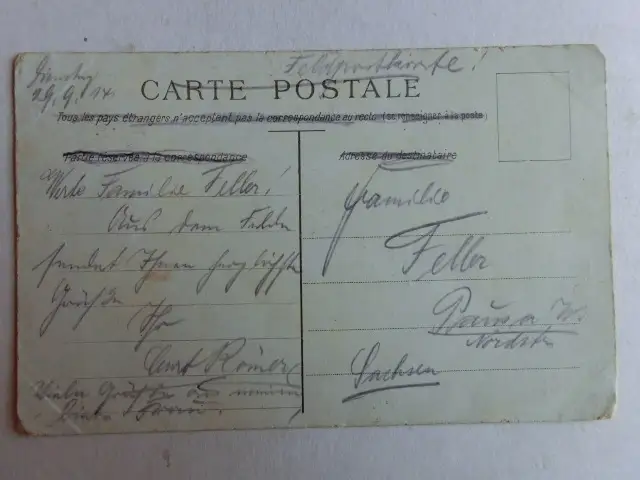 Dienstag
29. 9. 14.
Feldpostkarte!
CARTE POSTALE
Tous les pays étrangers n'acceptent pas la correspondance au recto (se renseigner à la poste)
Partie réservée à la correspondance
Adresse du destinataire
Werte Familie Feller!
Aus dem Felde
sendet Ihnen herzlichste
Grüße
Ihr
Curt Römer
Viele Grüße an meine
liebe Frau.
Familie
Feller
Pausa
Nordstr
Sachsen